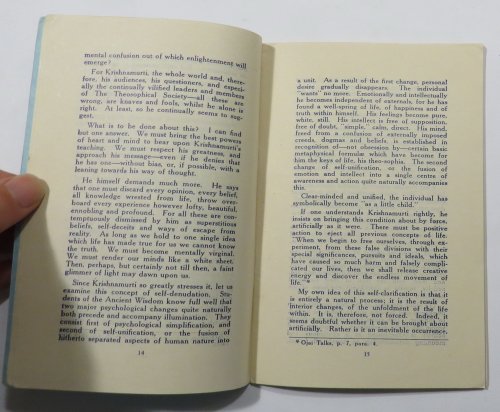 mental confusion out of which enlightenment will
emerge?
For Krishnamurti, the whole world and, there-
fore, his audiences, his questioners, and especi-
ally the continually vilified leaders and members
of The Theosophical Society—all these are
wrong, are knaves and fools, whilst he alone is
right. At least, so he continually seems to sug-
gest.
What is to be done about this? I can find
but one answer. We must bring the best powers
of heart and mind to bear upon Krishnamurti's
teaching. We must respect his greatness and
approach his message—even if he denies that
he has one—without bias, or, if possible, with a
leaning towards his way of thought.
He himself demands much more. He says
that one must discard every opinion, every belief,
all knowledge wrested from life, throw over-
board every experience however lofty, beautiful,
ennobling and profound. For all these are con-
temptuously dismissed by him as superstitious
beliefs, self-deceits and ways of escape from
reality. As long as we hold to one single idea
which life has made true for us we cannot know
the truth. We must become mentally virginal.
We must render our minds like a white sheet.
Then, perhaps, but certainly not till then, a faint
glimmer of light may dawn upon us.
Since Krishnamurti so greatly stresses it, let us
examine this concept of self-denudation. Stu-
dents of the Ancient Wisdom know full well that
two major psychological changes quite naturally
both precede and accompany illumination. They
consist first of psychological simplification, and
second of self-unification, or the fusion of
hitherto separated aspects of human nature into
14
a unit. As a result of the first change, personal
desire gradually disappears. The individual
"wants" no more. Emotionally and intellectually
he becomes independent of externals, for he has
found a well-spring of life, of happiness and of
truth within himself. His feelings become pure,
white, still. His intellect is free of supposition,
free of doubt, "simple," calm, direct. His mind,
freed from a confusion of externally imposed
creeds, dogmas and beliefs, is established in
recognition of—not obsession by—certain basic
metaphysical formulae which have become for
him the keys of life, his theo-sophia. The second
change of self-unification, or the fusion of
emotion and intellect into a single centre of
awareness and action quite naturally accompanies
this.
Clear-minded and unified, the individual has
symbolically become "as a little child."
If one understands Krishnamurti rightly, he
insists on bringing this condition about by force,
artificially as it were. There must be positive
action to eject all previous concepts of life.
"When we begin to free ourselves, through ex-
periment, from these false divisions with their
special significances, pursuits and ideals, which
have caused so much harm and falsely compli-
cated our lives, then we shall release creative
energy and discover the endless movement of
life."*
My own idea of this self-clarification is that it
is entirely a natural process; it is the result of
interior changes, of the unfoldment of the life
within. It is, therefore, not forced. Indeed, it
seems doubtful whether it can be brought about
artificially. Rather is it an inevitable occurrence,
* Ojai Talks, p. 7, para. 4.
15